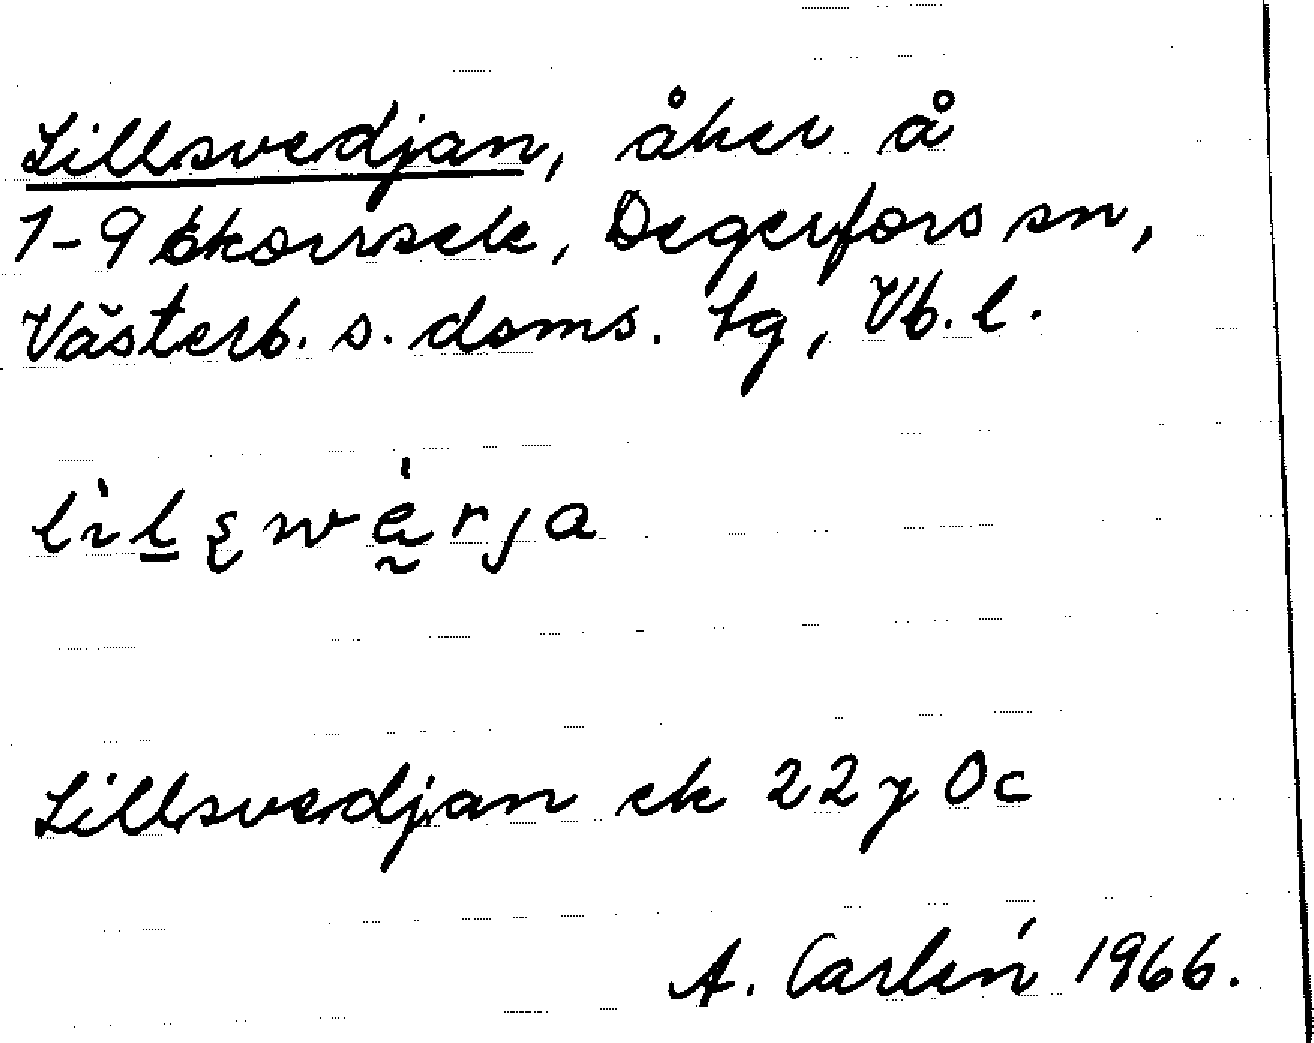 Lillsvedjan, åker å
1-9 Skourssele, Degerfors sn,
Västerb. s. doms. tg, Vb. l.
lìlswèrja
Lillsvedjan ek 22 y 0c
A. Carlén 1966.